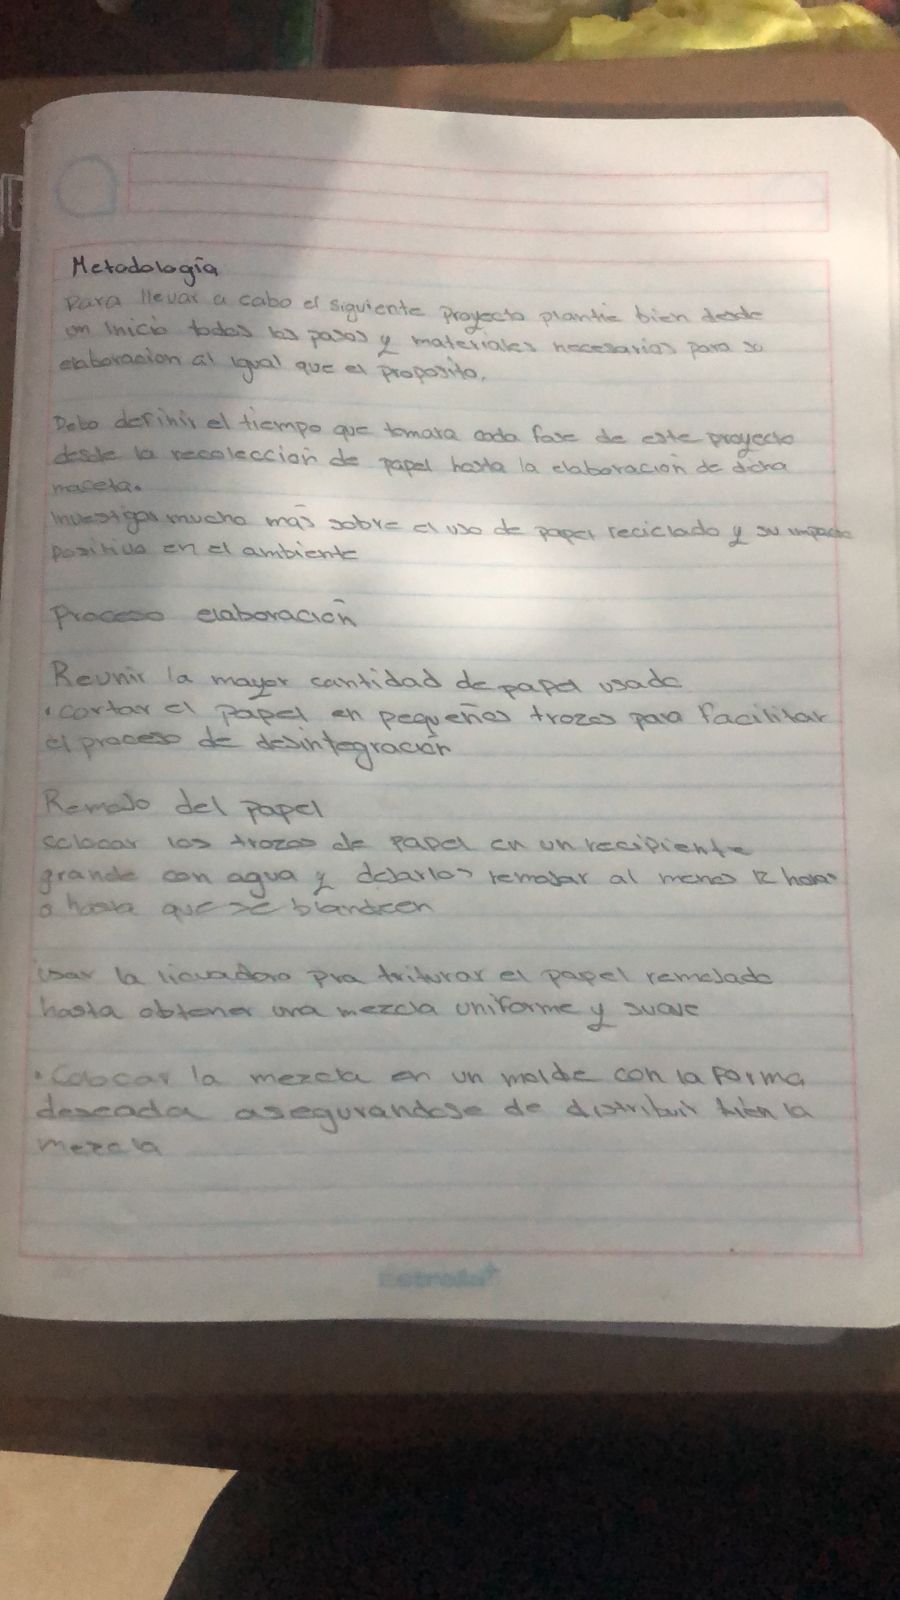 Metodología
Para llevar a cabo el siguiente proyecto plantie bien desde
un inicio todos los pasos y materiales necesarios para su
elaboracion al igual que el proposito.
Debo definir el tiempo que tomara cada fase de este proyecto
desde la recolección de papel hasta la elaboración de dicha
maceta.
Investigar mucho más sobre el uso de papel reciclado y su impacto
positivo en el ambiente
Proceso elaboración
Reunir la mayor cantidad de papel usado
• cortar el papel en pequeños trozos para facilitar
el proceso de desintegración
Remojo del papel
colocar los trozos de papel en un recipiente
grande con agua y dejarlos remojar al menos 12 horas
o hasta que se blandeen
usar la licuadora pra triturar el papel remojado
hasta obtener una mezcla uniforme y suave
• Colocar la mezcla en un molde con la forma
deseada asegurandose de distribuir bién la
mezcla
Estrella